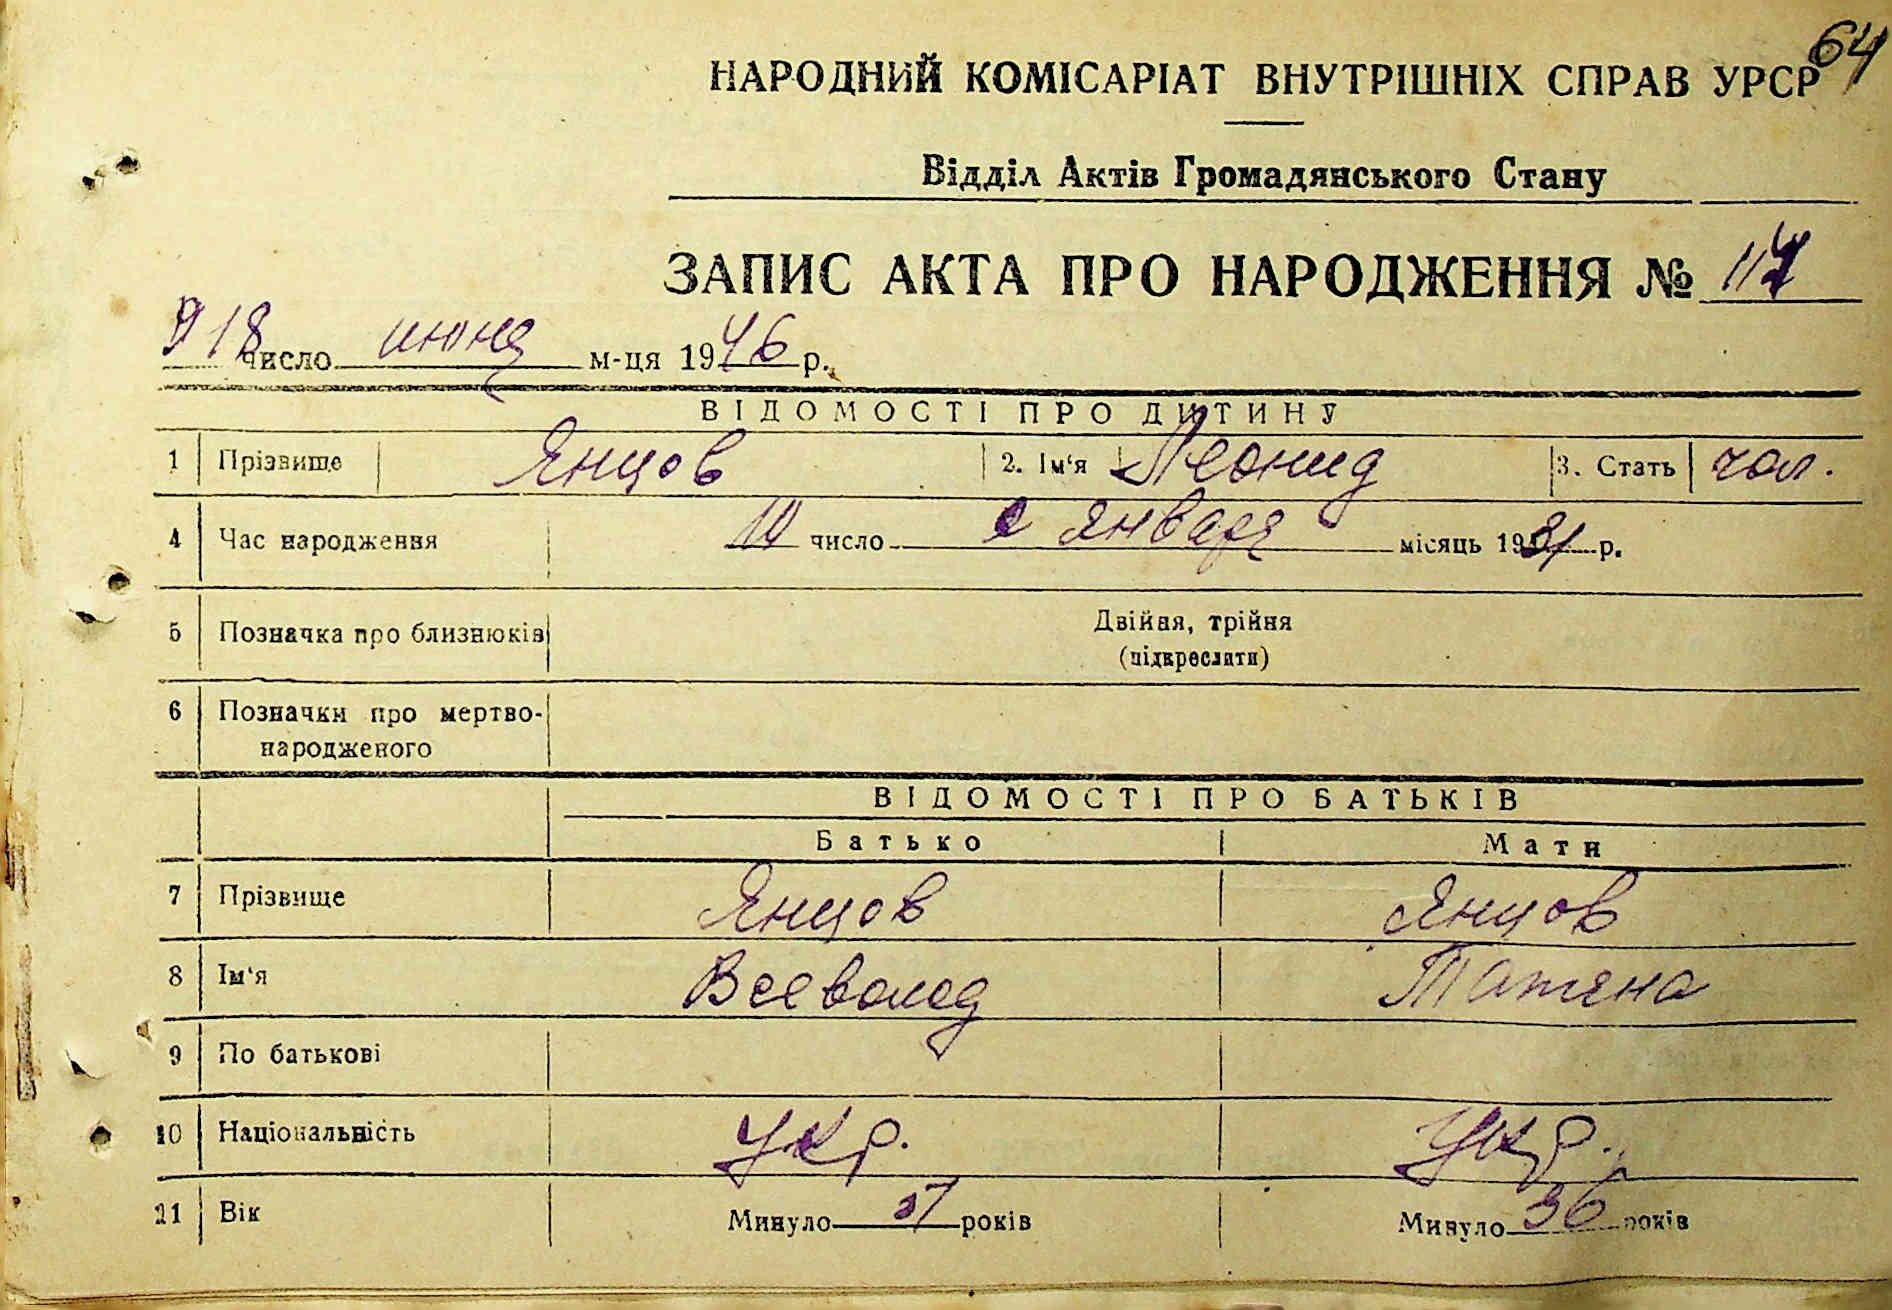 64
НАРОДНИЙ КОМІСАРІАТ ВНУТРІШНІХ СПРАВ УРСР
Відділ Актів Громадянського Стану
ЗАПИС АКТА ПРО НАРОДЖЕННЯ №
18 число июня м-ця 1946 р.
ВІДОМОСТІ ПРО ДИТИНУ
1 Прізвище Янцов 2. Ім'я Леонид 3. Стать чол.
4 Час народження 10 число января місяць 1931 р.
5 Позначка про близнюків Двійня, трійня
(підкреслити)
6 Позначки про мертво-
народженого
ВІДОМОСТІ ПРО БАТЬКІВ
Батько Мати
7 Прізвище Янцов Янцов
8 Ім'я Всеволод Татяна
9 По батькові
10 Національність Укр. Укр.
11 Вік Минуло 37 років Минуло 36 років